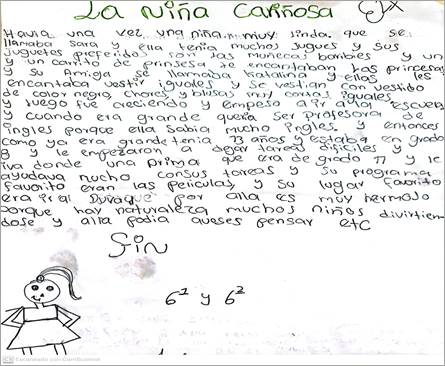 La niña cariñosa
Havia una vez una niña muy linda que se
llamaba Sara y ella tenia muchos jugues y sus
juguetes preferidos son las muñecas barbies y un
y un carrito de prinsesa le encantaban las princesas
y su Amiga se llamaba katalina y ellas les
encantaba vestir iguales y se vestian con vestido
de color negro, chores y blusas muy cortas iguales
y luego fue creciendo y empeso a ir a la escuela
y cuando era grande queria ser profesora de
ingles porque ella sabia mucho ingles. y entonces
como ya era grande tenia 13 años y estaba en grado
8 y le empezaron a dejar tareas dificiles y
iva donde una prima que era de grado 11 y le
ayudava mucho con sus tareas y su programa
favorito eran las peliculas y su lugar favorito
era ir al porque por alla es muy hermoso
porque hay naturaleza muchos niños divirtien
dose y alla podia queses pensar etc
fin
6² y 6²
Escaneado con CamScanner